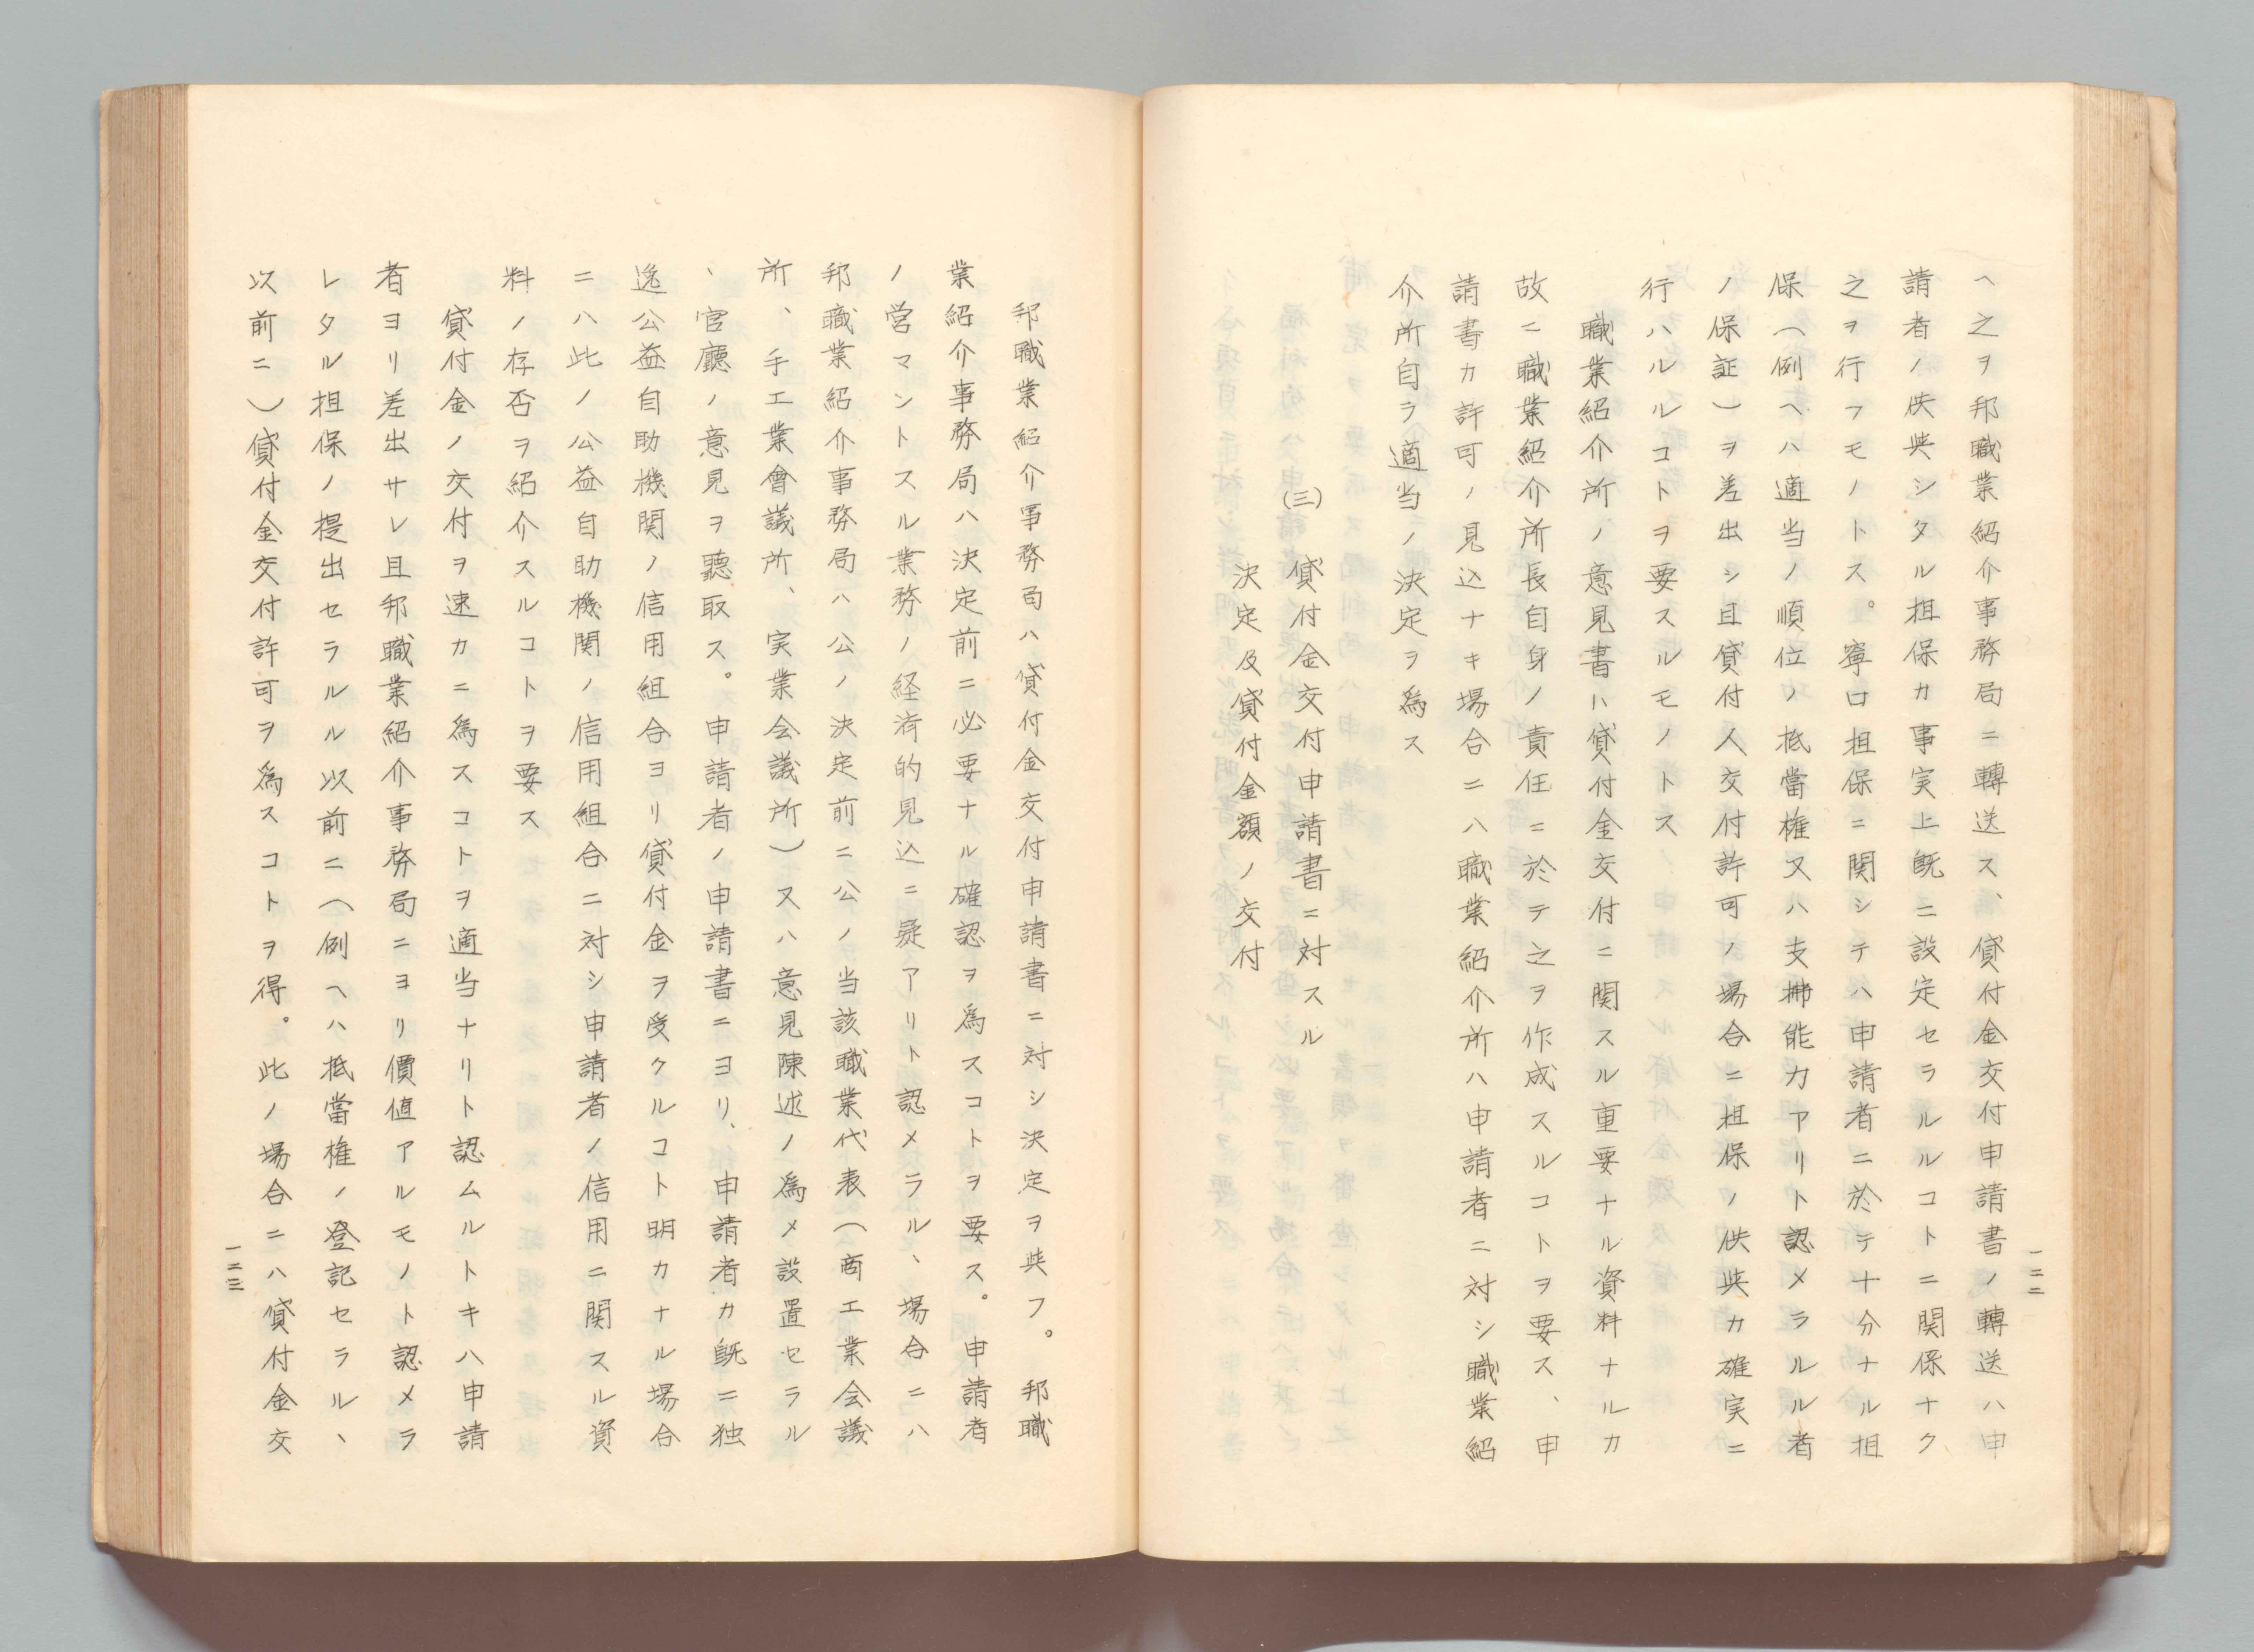 一二二
ヘ之ヲ邦職業紹介事務局ニ轉送ス、貸付金交付申請書ノ轉送ハ申
請者ノ供與シタル担保カ事実上既ニ設定セラルルコトニ関係ナク
之ヲ行フモノトス。寧口担保ニ関シテハ申請者ニ於テ十分ナル担
保(例ヘハ適当ノ順位ノ抵當権又ハ支拂能力アリト認メラルル者
ノ保証)ヲ差出シ且貸付人交付許可ノ場合ニ担保ノ供與カ確実ニ
行ハルルコトヲ要スルモノトス
職業紹介所ノ意見書ハ貸付金交付ニ関スル重要ナル資料ナルカ
故ニ職業紹介所長自身ノ責任ニ於テ之ヲ作成スルコトヲ要ス、申
請書カ許可ノ見込ナキ場合ニハ職業紹介所ハ申請者ニ対シ職業紹
介所自ラ適当ノ決定ヲ為ス
(三) 貸付金交付申請書ニ対スル
決定及貸付金額ノ交付
邦職業紹介事務局ハ貸付金交付申請書ニ対シ決定ヲ與フ。邦職
業紹介事務局ハ決定前ニ必要ナル確認ヲ為スコトヲ要ス。申請者
ノ営マントスル業務ノ経済的見込ニ疑アリト認メラル、場合ニハ
邦職業紹介事務局ハ公ノ決定前ニ公ノ当該職業代表(商工業会議
所、手工業會議所、実業会議所)又ハ意見陳述ノ為メ設置セラル
、官廳ノ意見ヲ聽取ス。申請者ノ申請書ニヨリ、申請者カ既ニ独
逸公益自助機関ノ信用組合ヨリ貸付金ヲ受クルコト明カナル場合
ニハ此ノ公益自助機関ノ信用組合ニ対シ申請者ノ信用ニ関スル資
料ノ存否ヲ紹介スルコトヲ要ス
貸付金ノ交付ヲ速カニ為スコトヲ適当ナリト認ムルトキハ申請
者ヨリ差出サレ且邦職業紹介事務局ニヨリ價値アルモノト認メラ
レタル担保ノ提出セラルル以前ニ(例ヘハ抵當権ノ登記セラル、
以前ニ)貸付金交付許可ヲ為スコトヲ得。此ノ場合ニハ貸付金交
一二三